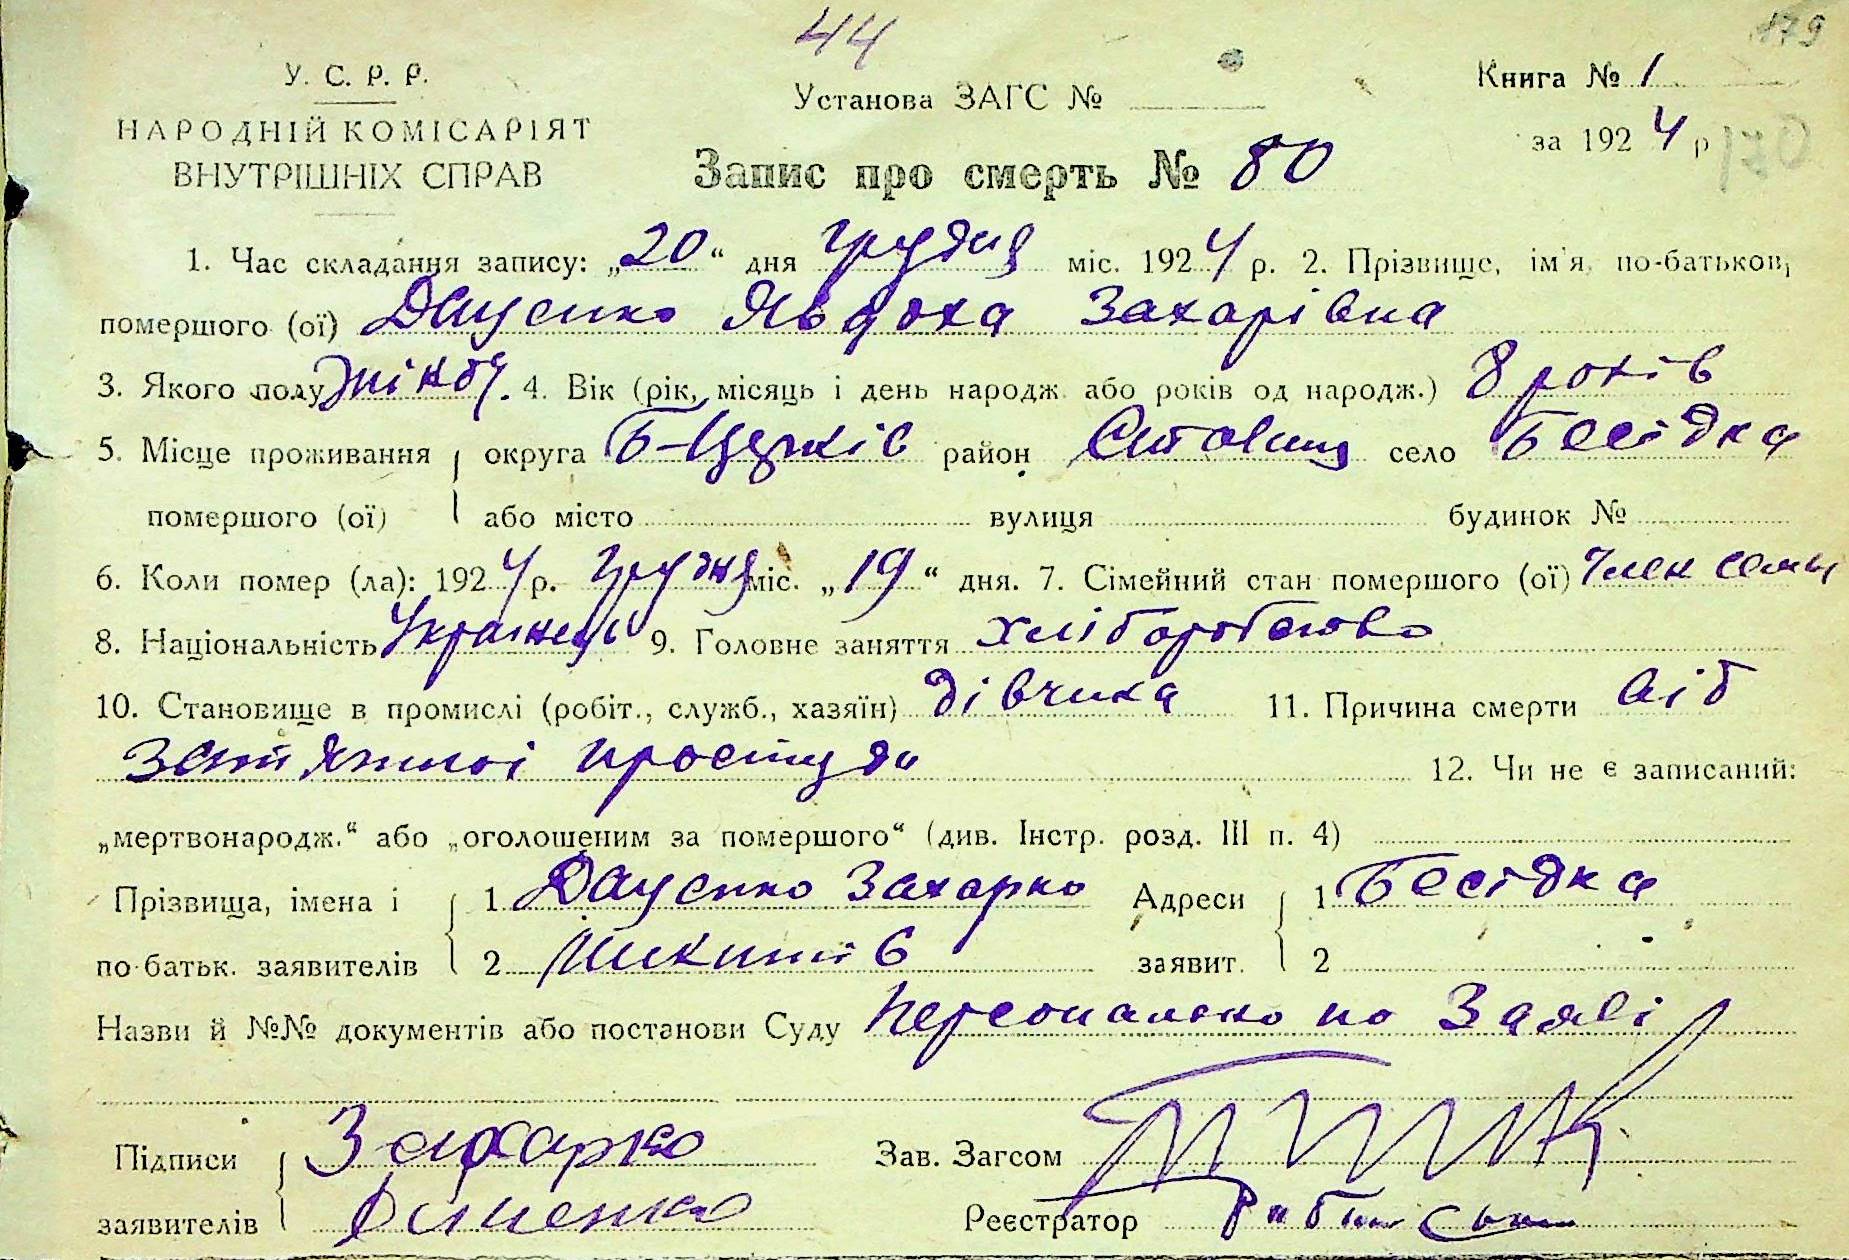 44
179
У. С. Р. Р.
НАРОДНІЙ КОМІСАРІЯТ
ВНУТРІШНІХ СПРАВ
Установа ЗАГС №
Книга № 1
за 1924 р
170
Запис про смерть № 80
1. Час складання запису: „20“ дня грудня міс. 1924 р. 2. Прізвище, ім'я, по-батькові
помершого (ої) Даценко Явдоха Захарівна
3. Якого полу жіноч. 4. Вік (рік, місяць і день народж. або років од народж.) 8 років
5. Місце проживання округа Б-Церків район село Бесідка
помершого (ої) або місто вулиця будинок №
6. Коли помер (ла): 1924 р. грудня міс. „19“ дня. 7. Сімейний стан помершого (ої) член семі
8. Національність Українці 9. Головне заняття хліборобство
10. Становище в промислі (робіт., служб., хазяїн) дівчина 11. Причина смерти від
затяжної простуди 12. Чи не є записаний:
„мертвонародж.“ або „оголошеним за помершого“ (див. Інстр. розд. III п. 4)
Прізвища, імена і 1 Даценко Захарко Адреси 1 Бесідка
по-батьк. заявителів 2 Никитів заявит. 2
Назви й №№ документів або постанови Суду персонально по Заяві
Підписи Захарко Зав. Загсом
заявителів Реєстратор